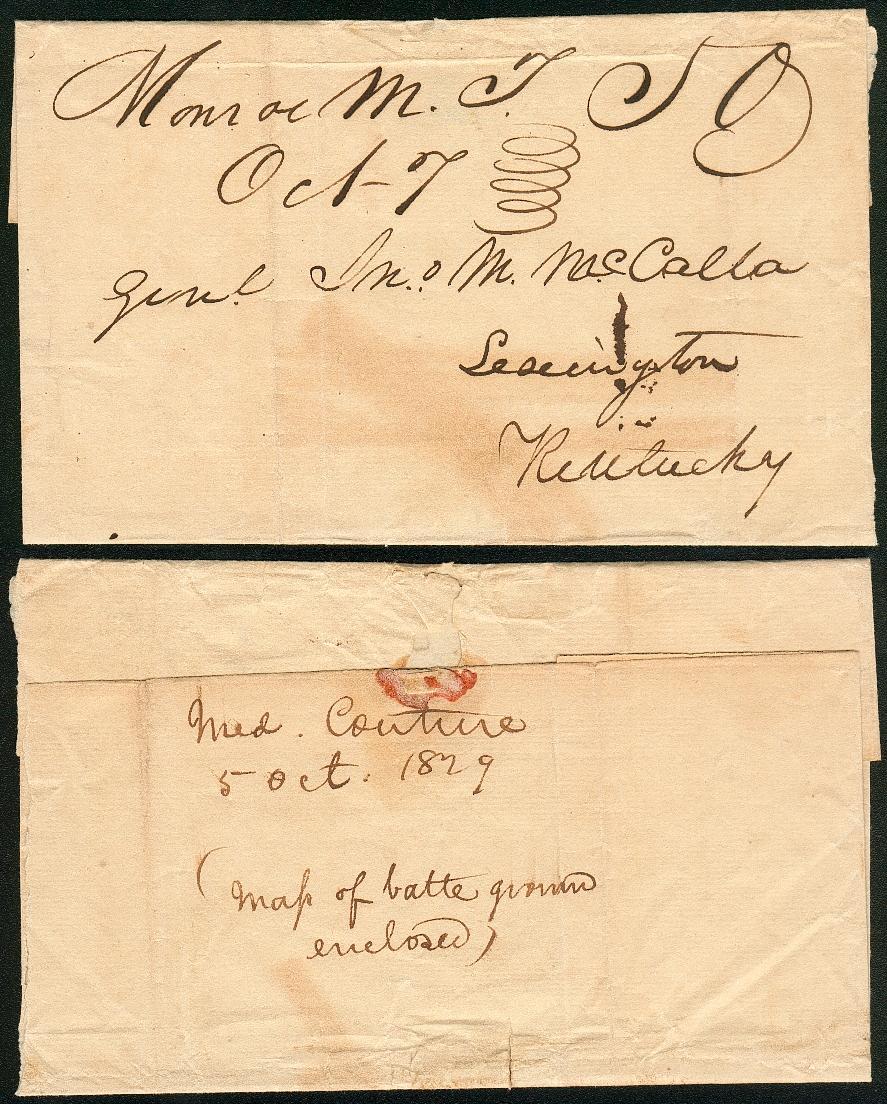 Monroe M. T. 50
Oct 7
Genl Jno. M. McCalla
Lexington
Kentucky
Med. Couture
5 Oct. 1829
(Map of batte groun
enclosed)